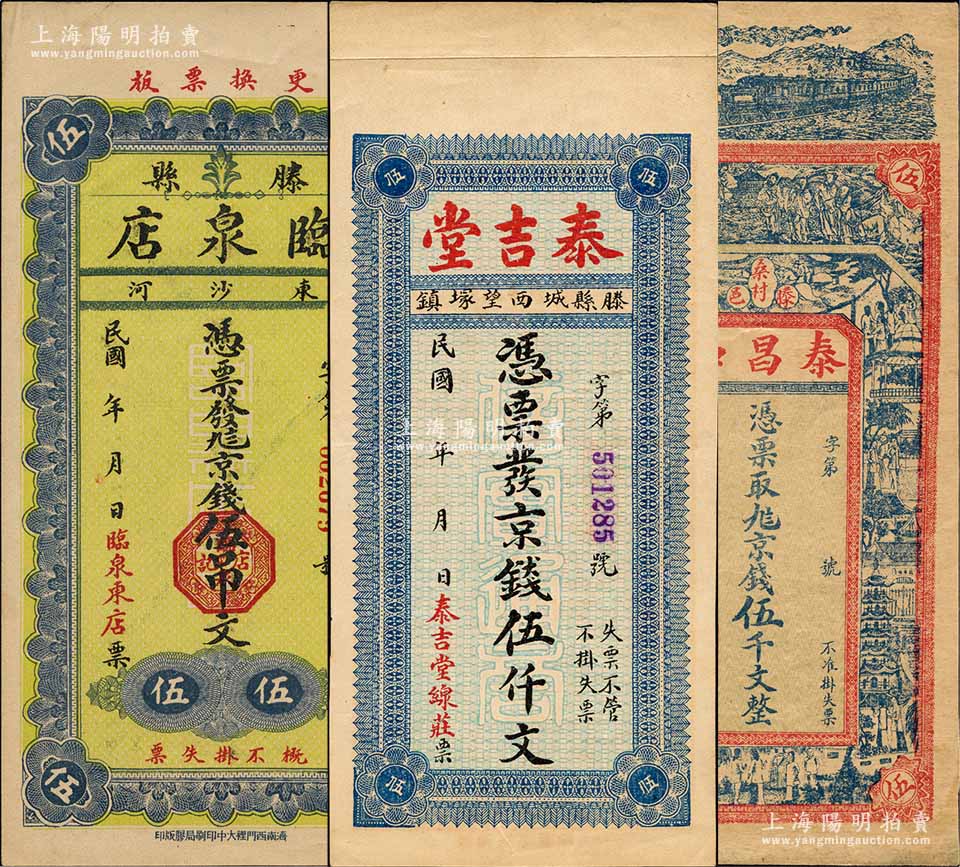 上海陽明拍賣
www.yangmingauction.com
更換票板
伍
滕縣
臨泉店
東沙河
憑票發兌京錢伍吊文
民國 年 月 日臨泉東店票
店記
伍 伍
概不掛失票
伍
濟南西門裡大中印刷局膠版印
伍 伍
泰吉堂
滕縣城西望塚鎮
字第 501285 號
失票不管
不掛失票
憑票發京錢伍仟文
民國 年 月 日泰吉堂線莊票
伍 伍
上海陽明拍賣
www.yangmingauction.com
伍
滕邑
桑村
泰昌
字第 號 不准掛失票
憑票取兌京錢伍千文整
伍
上海陽明拍賣
www.yangmingauction.com